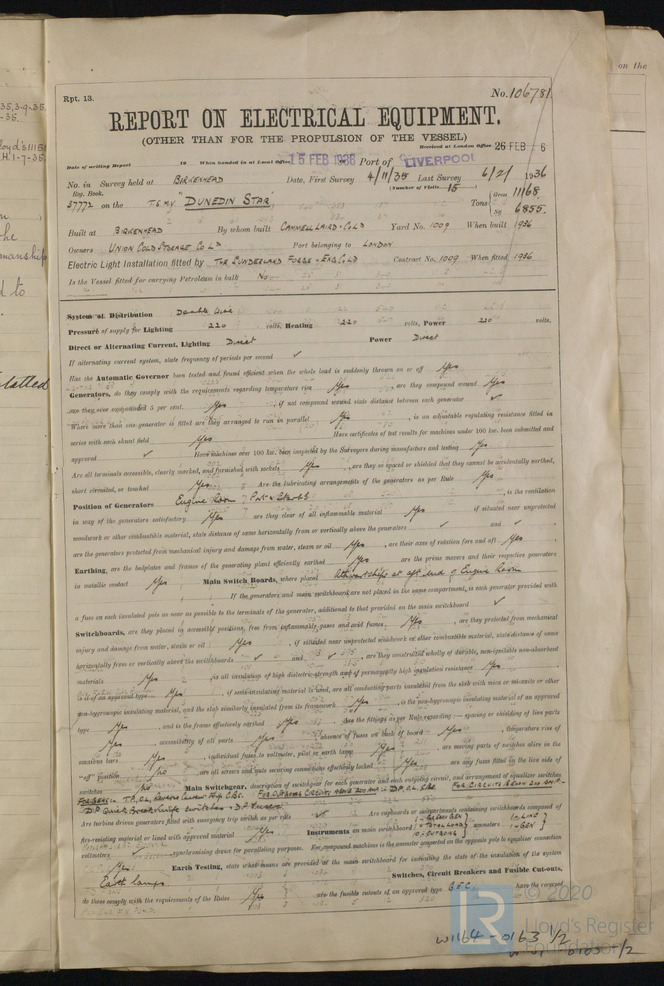 on the
35,3-9-35
-35.
H.1-7-35.
the
manship
d to
Rpt. 13.
No. 106781
REPORT ON ELECTRICAL EQUIPMENT.
(OTHER THAN FOR THE PROPULSION OF THE VESSEL)
Received at London Office 26 FEB
Date of writing Report 19 When handed in at Local Office 15 FEB 1936 Port of LIVERPOOL
No. in Survey held at BIRKENHEAD Date, First Survey 4/11/35 Last Survey 6/2/1936
Reg. Book. (Number of Visits 15)
37772 on the T.S.M.V "DUNEDIN STAR" Tons Gross 11168. Net 6855.
Built at BIRKENHEAD By whom built CAMMELL LAIRD & CO LD Yard No. 1009 When built 1936
Owners UNION COLD STORAGE CO LD Port belonging to LONDON
Electric Light Installation fitted by THE SUNDERLAND FORGE & ENG CO LD Contract No. 1009 When fitted 1936
Is the Vessel fitted for carrying Petroleum in bulk No
System of Distribution Double Wire
Pressure of supply for Lighting 220 volts, Heating 220 volts, Power 220 volts.
Direct or Alternating Current, Lighting Direct Power Direct
If alternating current system, state frequency of periods per second ✓
Has the Automatic Governor been tested and found efficient when the whole load is suddenly thrown on or off Yes
Generators, do they comply with the requirements regarding temperature rise Yes, are they compound wound Yes
are they over compounded 5 per cent. Yes, if not compound wound state distance between each generator ✓
Where more than one generator is fitted are they arranged to run in parallel Yes, is an adjustable regulating resistance fitted in
series with each shunt field Yes Have certificates of test results for machines under 100 kw. been submitted and
approved ✓ Have machines over 100 kw. been inspected by the Surveyors during manufacture and testing Yes
Are all terminals accessible, clearly marked, and furnished with sockets Yes, are they so spaced or shielded that they cannot be accidentally earthed,
short circuited, or touched Yes Are the lubricating arrangements of the generators as per Rule Yes
Position of Generators Engine Room Port & Starbd, is the ventilation
in way of the generators satisfactory Yes are they clear of all inflammable material Yes if situated near unprotected
woodwork or other combustible material, state distance of same horizontally from or vertically above the generators ✓ and ✓
are the generators protected from mechanical injury and damage from water, steam or oil Yes, are their axes of rotation fore and aft Yes
Earthing, are the bedplates and frames of the generating plant efficiently earthed Yes are the prime movers and their respective generators
in metallic contact Yes Main Switch Boards, where placed Athwartships at aft end of Engine Room
If the generators and main switchboard are not placed in the same compartment, is each generator provided with
a fuse on each insulated pole as near as possible to the terminals of the generator, additional to that provided on the main switchboard ✓
Switchboards, are they placed in accessible positions, free from inflammable gases and acid fumes, Yes, are they protected from mechanical
injury and damage from water, steam or oil Yes, if situated near unprotected woodwork or other combustible material, state distance of same
horizontally from or vertically above the switchboards ✓ and ✓, are they constructed wholly of durable, non-ignitable non-absorbent
materials Yes, is all insulation of high dielectric strength and of permanently high insulation resistance Yes
is it of an approved type Yes, if semi-insulating material is used, are all conducting parts insulated from the slab with mica or micanite or other
non-hygroscopic insulating material, and the slab similarly insulated from its framework Yes, is the non-hygroscopic insulating material of an approved
type Yes, and is the frame effectively earthed Yes. Are the fittings as per Rule regarding:— spacing or shielding of live parts
Yes, accessibility of all parts Yes, absence of fuses on back of board Yes, temperature rise of
omnibus bars Yes, individual fuses to voltmeter, pilot or earth lamp Yes, are moving parts of switches alive in the
"off" position No, are all screws and nuts securing connections effectively locked Yes are any fuses fitted on the live side of
switches No Main Switchgear, description of switchgear for each generator and each outgoing circuit, and arrangement of equalizer switches
D.P. Quick Break Knife switches & D.P. Fuses.
Are turbine driven generators fitted with emergency trip switch as per rule ✓ Are cupboards or compartments containing switchboards composed of
fire-resisting material or lined with approved material Yes Instruments on main switchboard ammeters
voltmeters ✓ synchronising device for paralleling purposes. For compound machines is the ammeter connected on the opposite pole to equaliser connection
Yes Earth Testing, state what means are provided at the main switchboard for indicating the state of the insulation of the system
Earth lamps Switches, Circuit Breakers and Fusible Cut-outs,
do these comply with the requirements of the Rules Yes are the fusible cutouts of an approved type G.E.C. have the reqd
© 2020
LR
Lloyd's Register
Foundation
W1164-0163 1/2